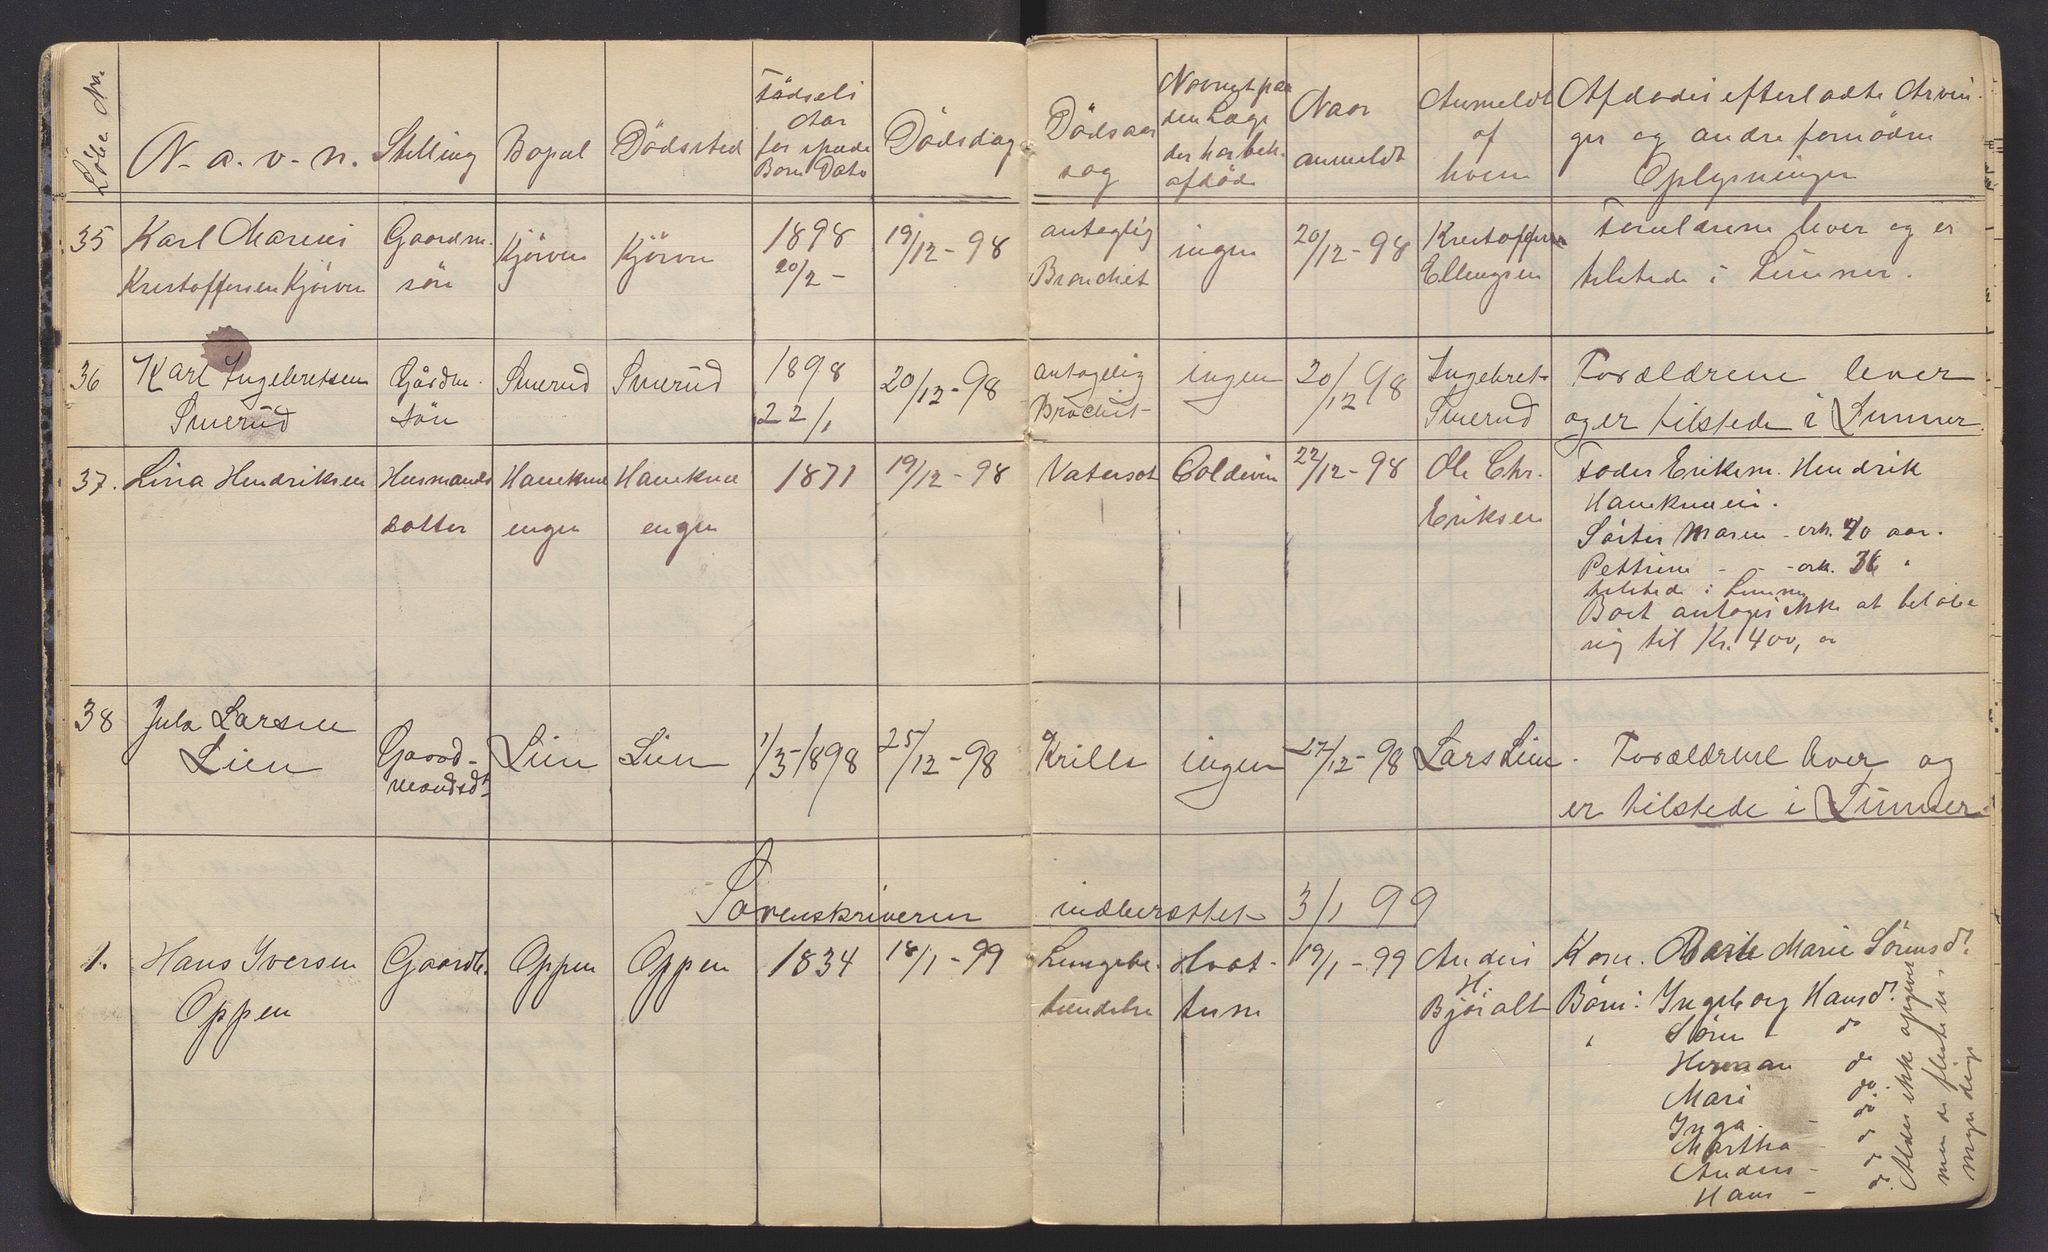 Löbe Nr.
N. a. v. n.
Stilling
Bopæl
Dödssted
Födsels
Aar
for spæde
Börn Dato
Dödsdag
Dödsaar
sag
Navnet paa
den Læge
der har beh.
afdöde
Naar
anmeldt
Anmeldt
af
hvem
Afdödes efterladte Arvin-
ger og andre fornödne
Oplysninger
35
Karl Marius
Krestoffersen Kjörven
Gaardm.
sön
Kjörven
Kjörven
1898
20/2 -
19/12 - 98
antaglig
Bronchit
ingen
20/12 - 98
Krestoffer
Ellingsen
Forældrene lever og er
tilstede i Lunner.
36
Karl Ingebretsen
Smerud
Gårdm.
sön
Smerud
Smerud
1898
22/1
20/12 - 98
antagelig
Brochit
ingen
20/12 98
Ingebret
Smerud
Forældrene lever
og er tilstede i Lunner.
37.
Lina Hendriksen
Husmands
datter
Hanekne
engen
Haneknæ
engen
1871
19/12 - 98
Vatersot
Coldevin
22/12 - 98
Ole Chr.
Eriksen
Fader Enkem. Hendrik
Hanekneen.
Söster Maren - ork. 40 aar.
Pettrine - - ork. 36 "
tilstede i Lunner
Boet antages ikke at belöbe
sig til Kr. 400,00
38
Jula Larsen
Lien
Gaard-
mandsdt.
Lien
Lien
1/3 - 1898
25/12 - 98
Krills
ingen
27/12 - 98
Lars Lien.
Forældrene lever og
er tilstede i Lunner.
Sorenskriveren indberettet 3/1 99
1.
Hans Iversen
Oppen
Gaardb.
Oppen
Oppen
1834
18/1 - 99
Lungebe-
tændelse
Hvat-
tum
19/1 - 99
Anders
H.
Björalt
Kone. Marie Sörensdt.
Börn: Ingeborg Hansdt.
" Sören do
Herman do
Mari do
Inga - do
Martha - do
Anders - do
Hans - do
Alder ikke opgivet
men de fleste er
myndige